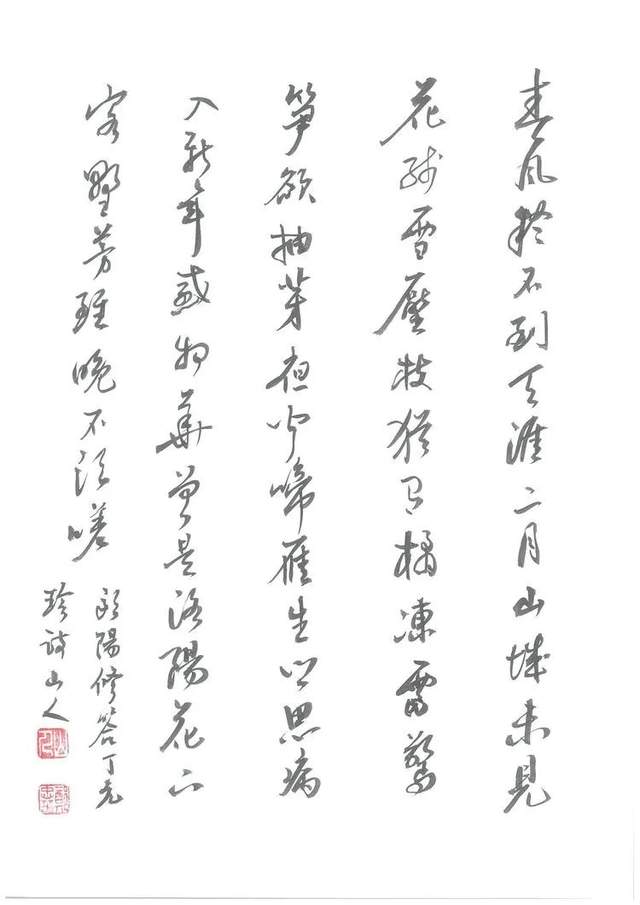 春風疑不到天涯二月山城未見
花殘雪壓枝猶有橘凍雷驚
筍欲抽芽夜聞啼雁生鄉思病
入新年感物華曾是洛陽花下
客野芳雖晚不須嗟
歐陽修答丁元
珍詩山人